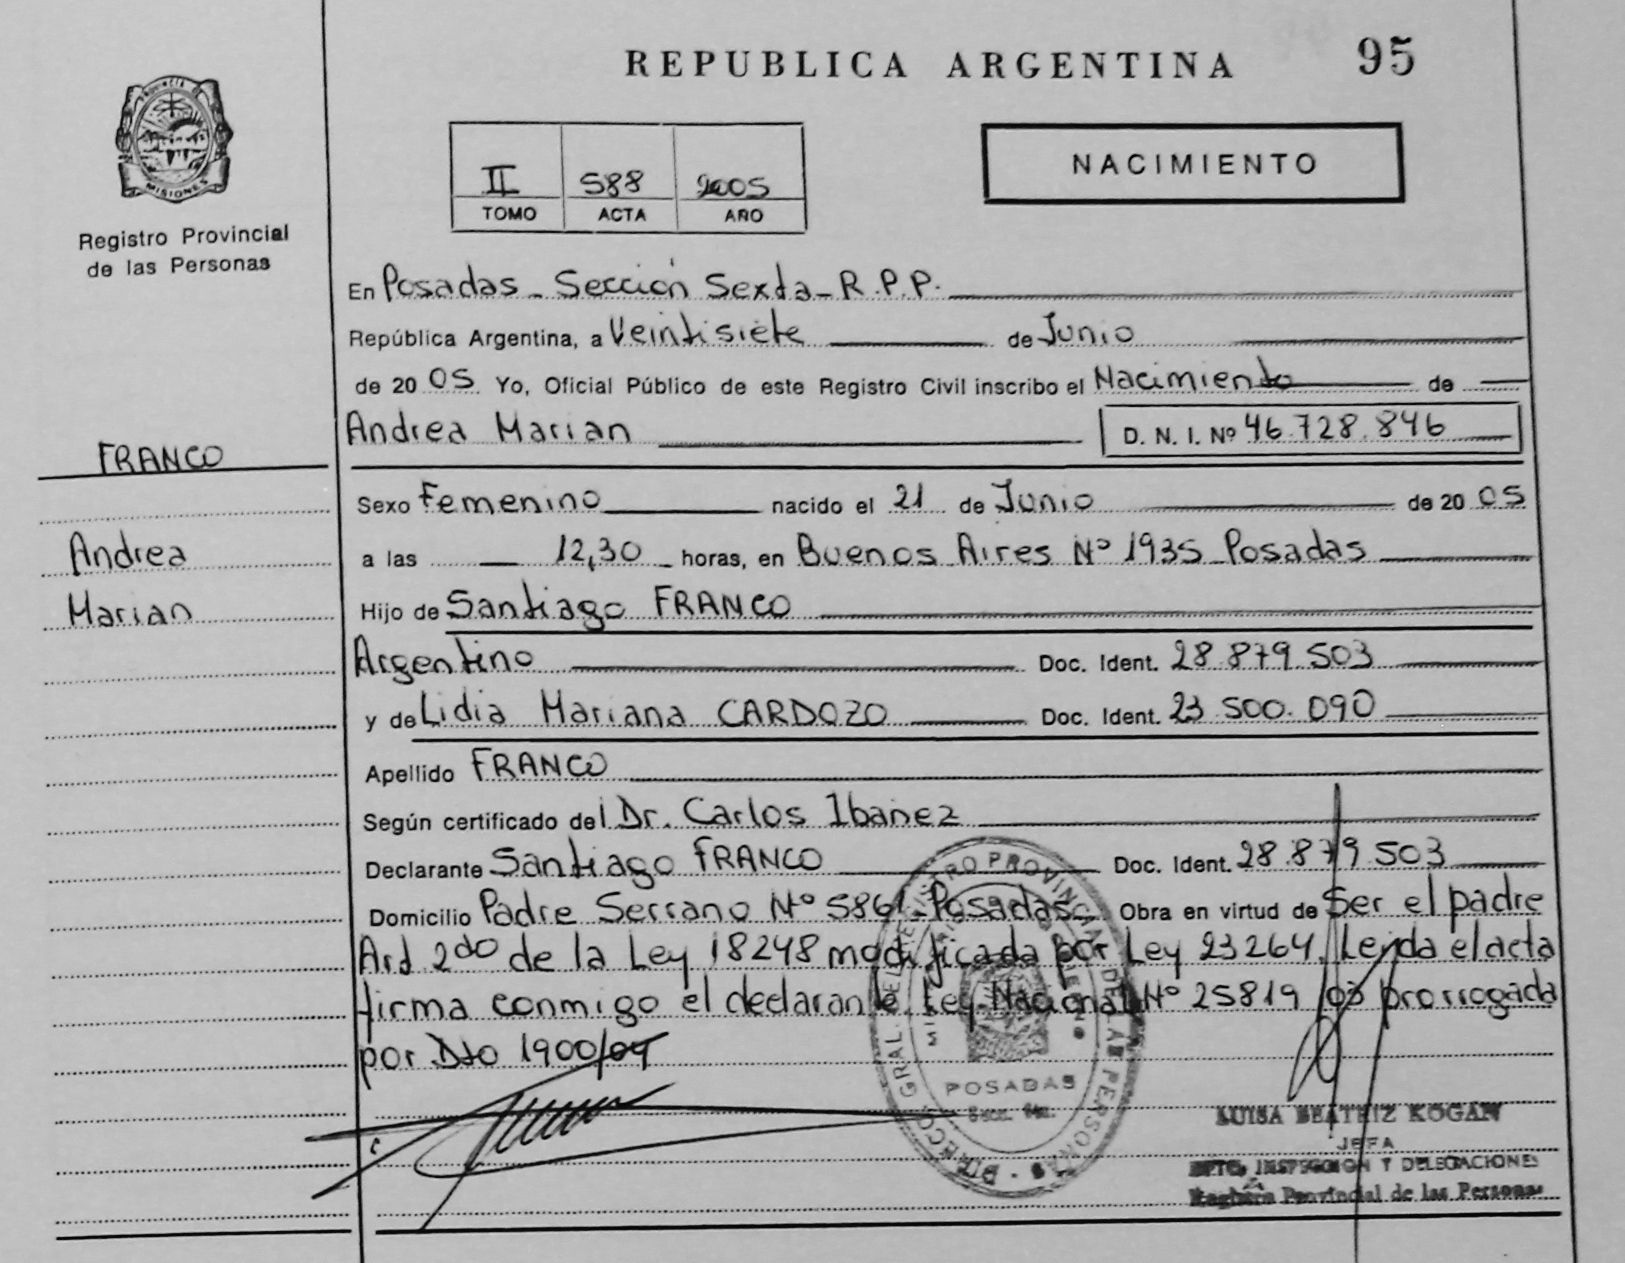 REPUBLICA ARGENTINA 95
PROVINCIA DE
MISIONES
Registro Provincial
de las Personas
II 588 2005
TOMO ACTA AÑO
NACIMIENTO
En Posadas - Sección Sexta - R.P.P.
República Argentina, a Veintisiete de Junio
de 20 05 Yo, Oficial Público de este Registro Civil inscribo el Nacimiento de
Andrea Marian D. N. I. Nº 46.728.846
FRANCO
Sexo Femenino nacido el 21 de Junio de 20 05
Andrea
a las 12,30 horas, en Buenos Aires Nº 1935 Posadas
Marian
Hijo de Santiago FRANCO
Argentino Doc. Ident. 28.879.503
y de Lidia Mariana CARDOZO Doc. Ident. 23.500.090
Apellido FRANCO
Según certificado del Dr. Carlos Ibañez
Declarante Santiago FRANCO Doc. Ident. 28.879.503
Domicilio Padre Serrano Nº 5861 - Posadas Obra en virtud de Ser el padre
Art 2do de la Ley 18248 modificada por Ley 23264. Leida el acta
firma conmigo el declarante. Ley Nacional Nº 25819/03 prorrogada
por Dto 1900/04
POSADAS
LUISA BEATRIZ KOGAN
JEFA
DPTO. INSPECCION Y DELEGACIONES
Registro Provincial de las Personas